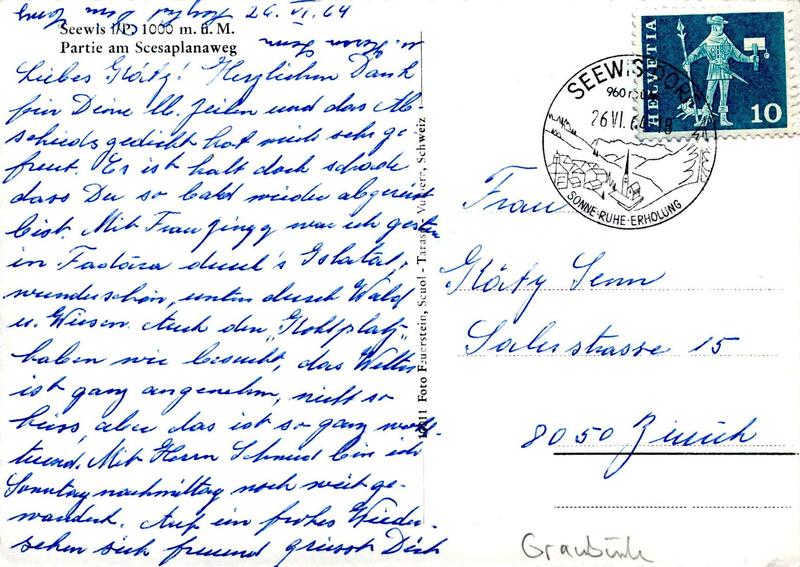 26. VI. 64
Seewis i/P. 1000 m. ü. M.
Partie am Scesaplanaweg
Liebes Kätzy! Herzlichen Dank
für Deine lb. Zeilen und das Ab-
schiedsgedicht hat mich sehr ge-
freut. Es ist halt doch schade
dass Du so bald wieder abgereist
bist. Mit Frau Zingg war ich gestern
in Fadära durch's
wunderschön, unten durch Wald
u. Wiesen. Auch den "Kohlplatz"
haben wir besucht, das Wetter
ist ganz angenehm, nicht so
heiss, aber das ist so ganz wohl-
tuend. Mit Herrn Schmid bin ich
Sonntag nachmittag noch weit ge-
wandert. Auf ein frohes Wieder-
sehen sich freuend grüsst Dich
11 Foto Feuerstein, Scuol - Tarasp - Vulpera, Schweiz
HELVETIA
10
SEEWIS DORF
960 m
26. VI. 64 - 18
SONNE·RUHE·ERHOLUNG
Frau
Kätzy Senn
Salerstrasse 15
8050 Zürich